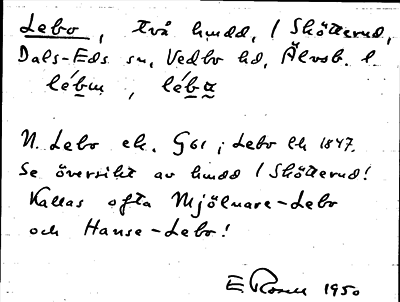 Lebo, två hmdd, / Skötterud,
Dals-Eds sn, Vedbo hd, Älvsb. l.
lébm, lébα
N. Lebo ek. G61; Lebo lk 1847.
Se översikt av hmdd / Skötterud!
Kallas ofta Mjölnare-Lebo
och Hanse-Lebo!
E Rosell 1950